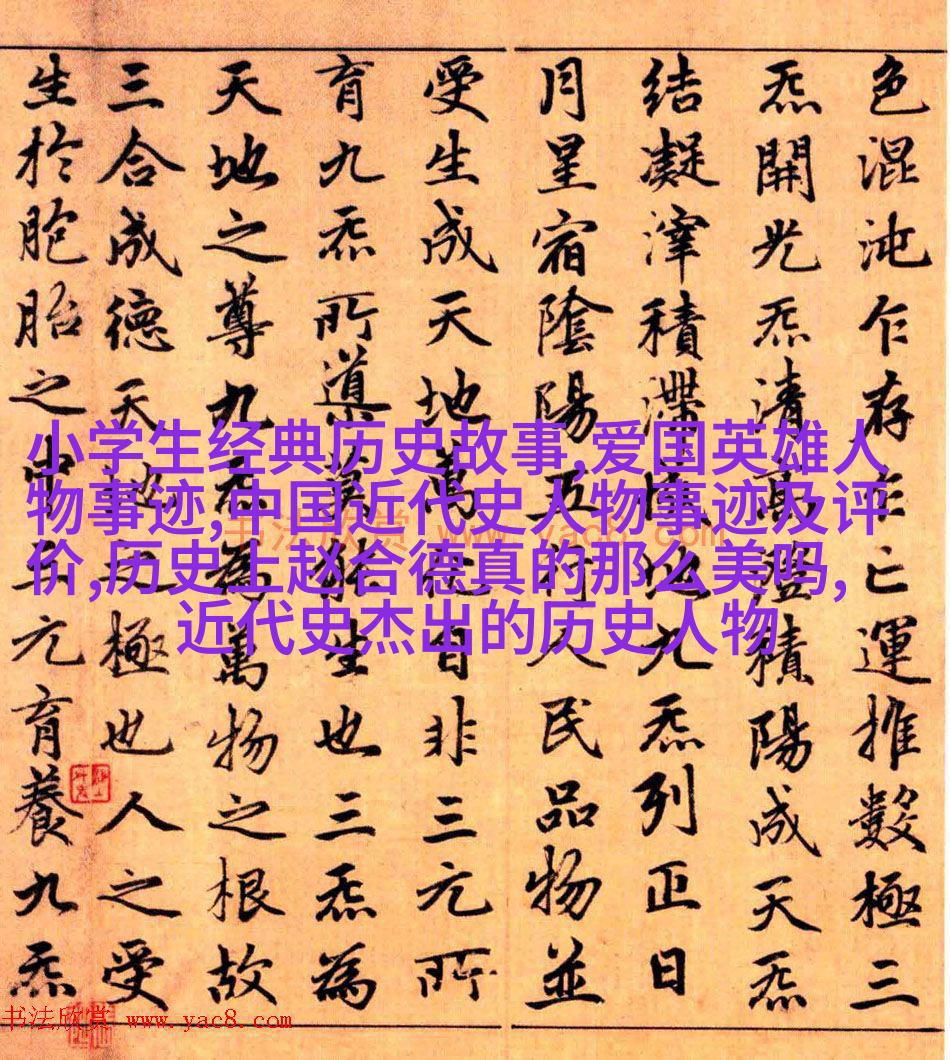 色混沌乍存乍亡運推數極三
炁開光炁清高澄積陽成天炁
結凝滓積滯成地九炁列正日
月星宿陰陽五行人民品物並
受生成天地萬化自非三元所
育九炁所導莫能生也三炁為
天地之尊九炁為萬物之根故
三合成德天地之極也人之受
生於胞胎之中三元育養九炁
小学生经典历史故事,爱国英雄人
物事迹,中国近代史人物事迹及评
价,历史上赵合德真的那么美吗,
近代史杰出的历史人物
书法欣赏 www.yac8.com
书法欣赏 www.yac8.com